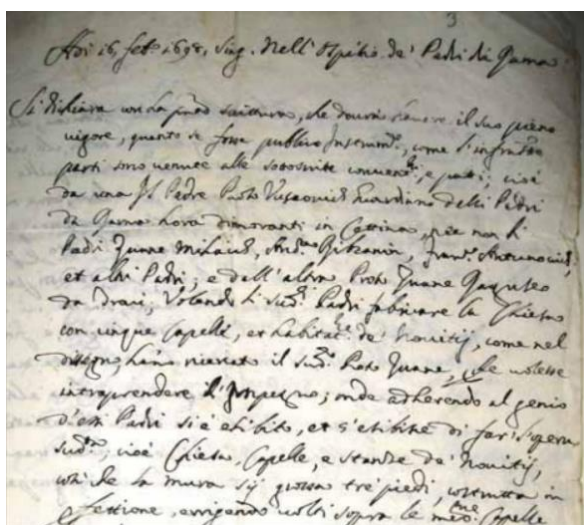 3
Adi 16, febo 1698, Sing. Nell'Ospitio de' Padri di Rama
Si dichiara con la pnte scrittura, che dovrà havere il suo pieno
vigore, quanto se fosse publico Instrumto, come l'infratte
parti sono venute alle sottoscritte convenni, e patti; cioè
da una Il Padre Paolo Guardiano delli Pri
da Rama hora dimoranti in Cettina, nec non li
Padri Zuane
et altri Padri, e dall'altra Proto Zuane
da Volendo li sudi Padri fabricare la Chiesa
con cinque Capelle, et habitatne de' Novitij, come nel
dissegno, hano ricercato il sudo Proto Zuane, che volesse
intraprendere l'impegno; onde adherendo al genio
d'essi Padri si è esibito, et s'esibisse di far l'opera
sudta, cioè Chiesa, Capelle, e stanze de' Novitij,
con che la mura sij grossa tre piedi, costrutta in
erigendo volti sopra le medme Capelle